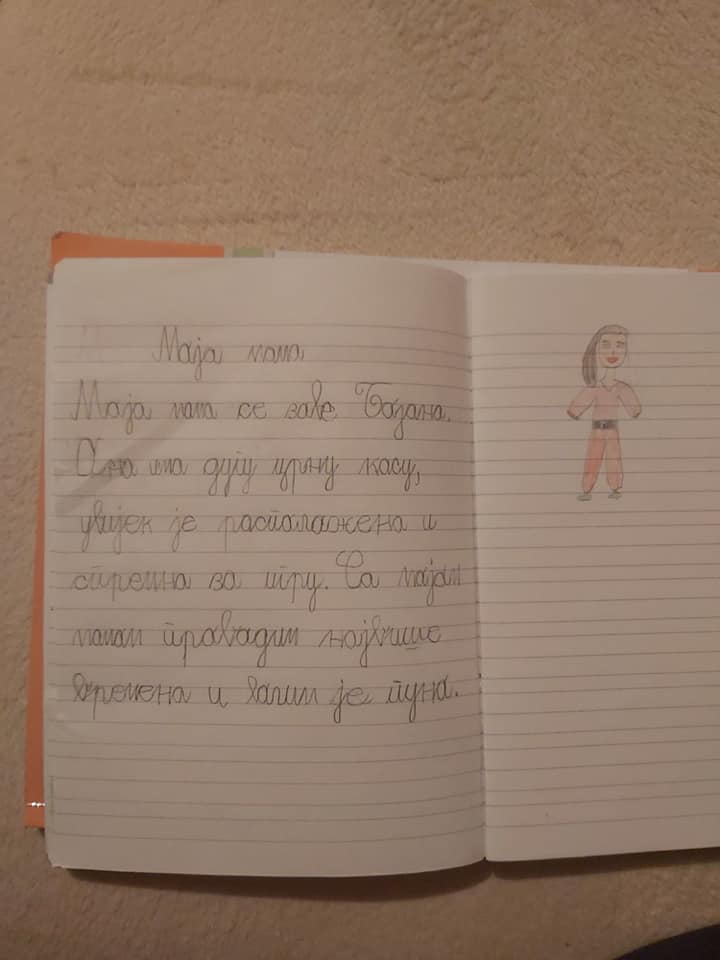 Моја мама
Моја мама се зове Бојана.
Она има дугу црну косу,
увијек је расположена и
спремна за игру. Са мојом
мамом проводим највише
времена и волим је пуно.